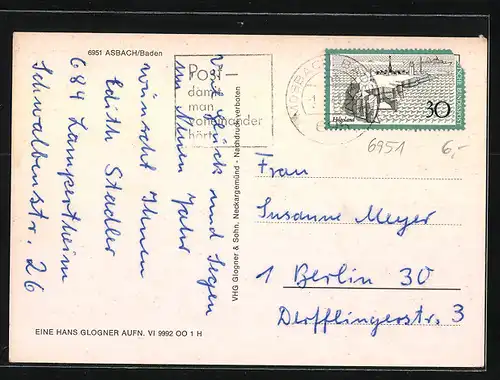 6951 ASBACH/Baden
Viel Glück und Segen
im Neuen Jahr
wünscht Ihnen
Edith Stadler
684 Lampertheim
Schwalbenstr. 26
Post –
damit
man
voneinander
hört
MOSBACH
Helgoland
30
DEUTSCHE BUNDESPOST
6951
6,-
VHG Glogner & Sohn, Neckargemünd · Nachdruck verboten
Frau
Susanne Meyer
1 Berlin 30
Derfflingerstr. 3
EINE HANS GLOGNER AUFN. VI 9992 OO 1 H